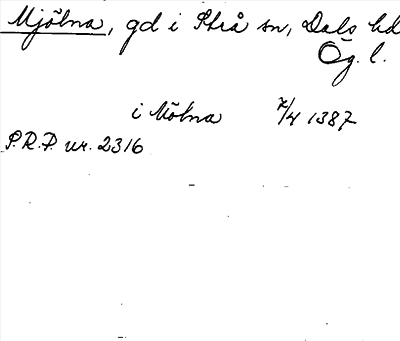 Mjölna, gd i Strå sn, Dals hd
Ög. l.
i Mölna 7/4 1387
P.R.P. nr. 2316